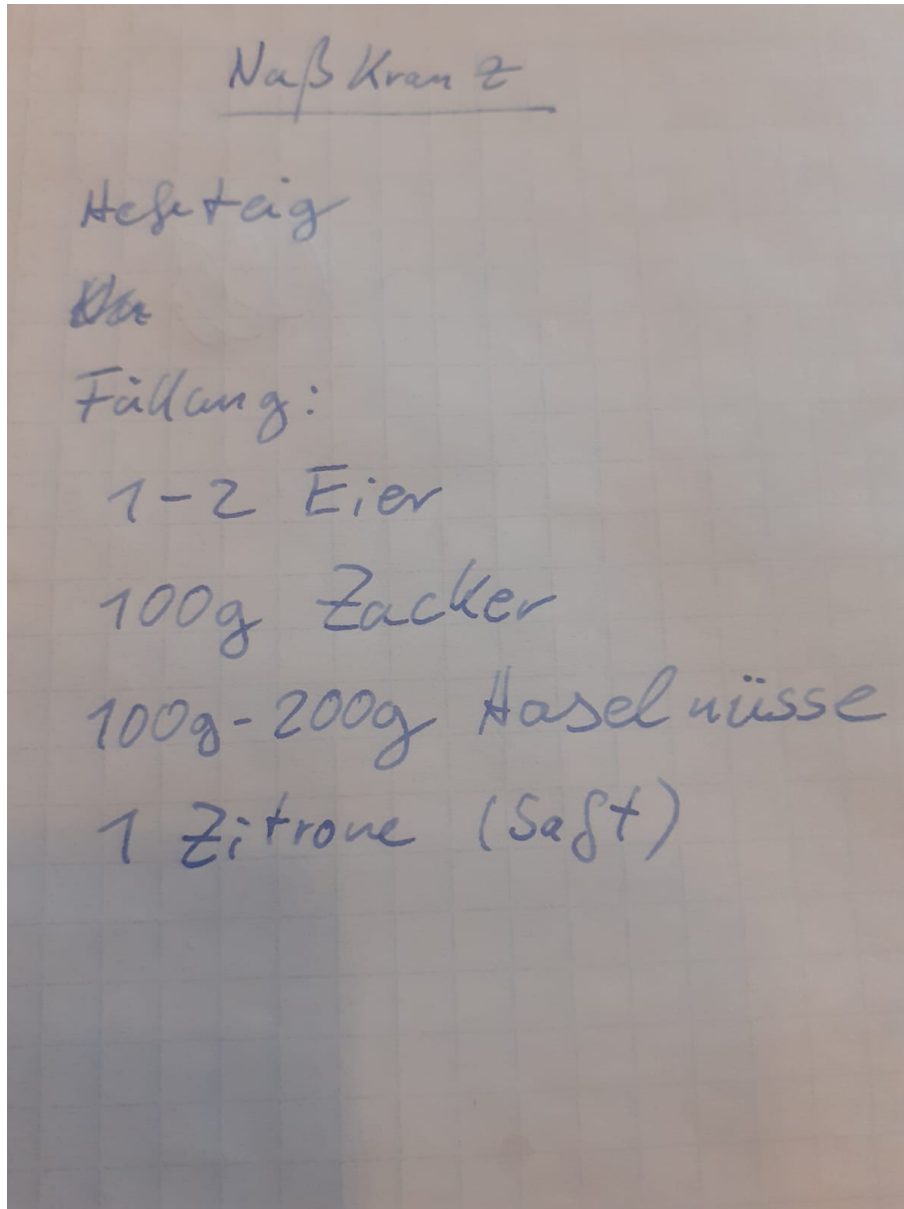 Nußkranz
Hefeteig
Füllung:
1-2 Eier
100g Zucker
100g-200g Haselnüsse
1 Zitrone (Saft)